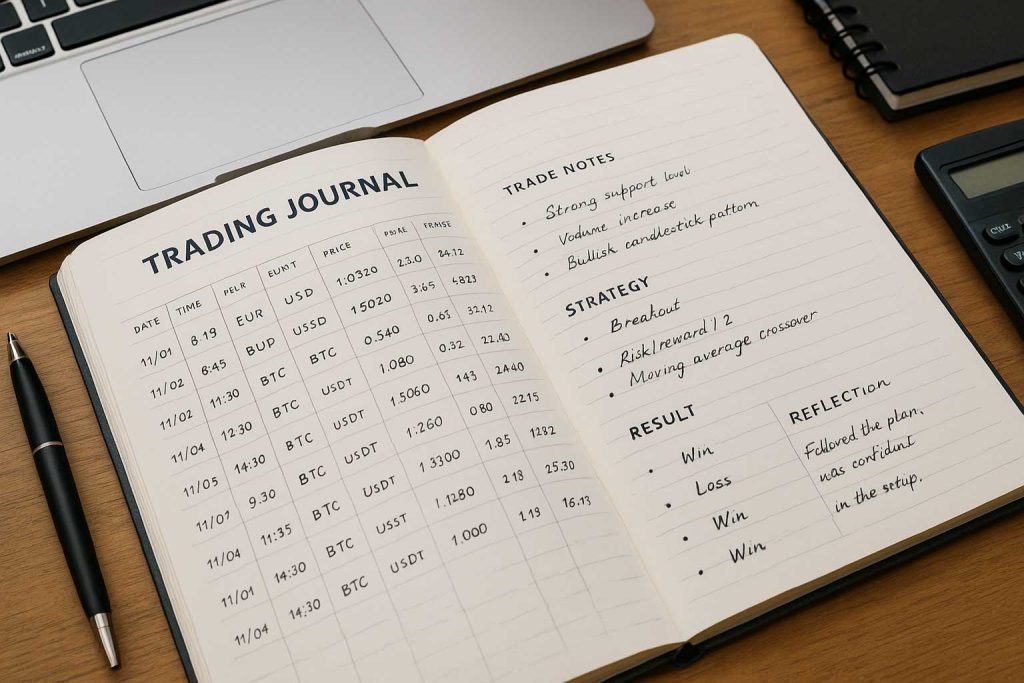 TRADING JOURNAL
DATE TIME PELR EUMT PRICE FRAISE
11/01 8:19 EUR USD 1:0320 23.0 24.12
11/02 8:45 BUP USSD 15020 3:65 4823
11/02 11:30 BTC BTC 0.540 0.65 32.12
11/04 12:30 BTC USDT 1.080 0.32 22.40
11/05 14:30 BTC USDT 1.5060 143 2440
11/07 9.30 BTC USDT 1.260 080 2215
11/04 11:35 BTC USDT 1 3300 1.85 1282
11/01 14:30 BTC USST 1.1280 218 25.30
11/04 14:30 BTC USDT 1,000 1.19 16.13
TRADE NOTES
• Strong support level
• Vodume increase
• Bullisk candlestick pattorn
STRATEGY
• Breakout
• Risk/reward | 2
• Moving average crossover
RESULT
• Win
• Loss
• Win
• Win
REFLECTION
Followed the plan,
was confident
in the setup.